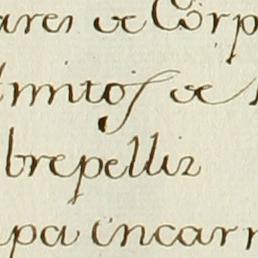 ares de Corp
nnitos de
brepelliz
pa incarn